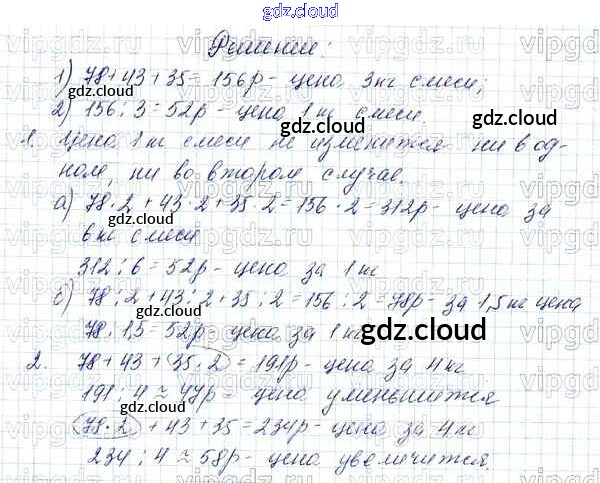 gdz.cloud
Решение:
1) 78+43+35=156р - цена 3кг смеси;
2) 156:3=52р - цена 1кг смеси.
1. Цена 1кг смеси не изменится ни в од-
ном, ни во втором случае.
а) 78·2+43·2+35·2=156·2=312р - цена за
6кг смеси
312:6=52р - цена за 1кг
б) 78:2+43:2+35:2=156:2=78р - за 1,5кг цена
78:1,5=52р - цена за 1кг
2. 78+43+(35·2)=191р - цена за 4кг
191:4≈47р - цена уменьшится
(78·2)+43+35=234р - цена за 4кг
234:4≈58р - цена увеличится.